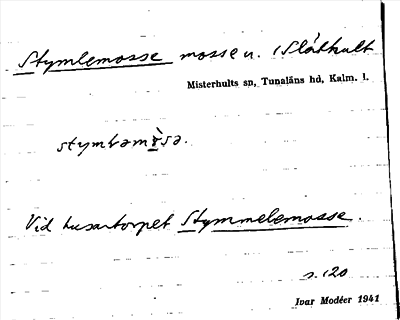 Stymlemosse mosse n. i Slåthult
Misterhults sn, Tunaläns hd, Kalm. l.
Vid husartorpet Stymmelemosse.
s. 120
Ivar Modéer 1941